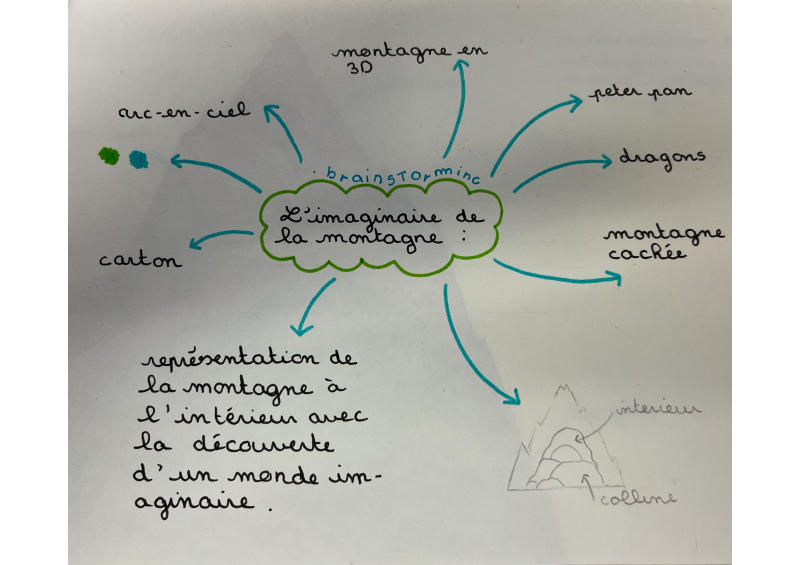 montagne en
3D
arc-en-ciel
peter pan
dragons
brainstorming
L'imaginaire de
la montagne :
montagne
cachée
carton
représentation de
la montagne à
l'intérieur avec
la découverte
d'un monde im-
aginaire.
interieur
colline